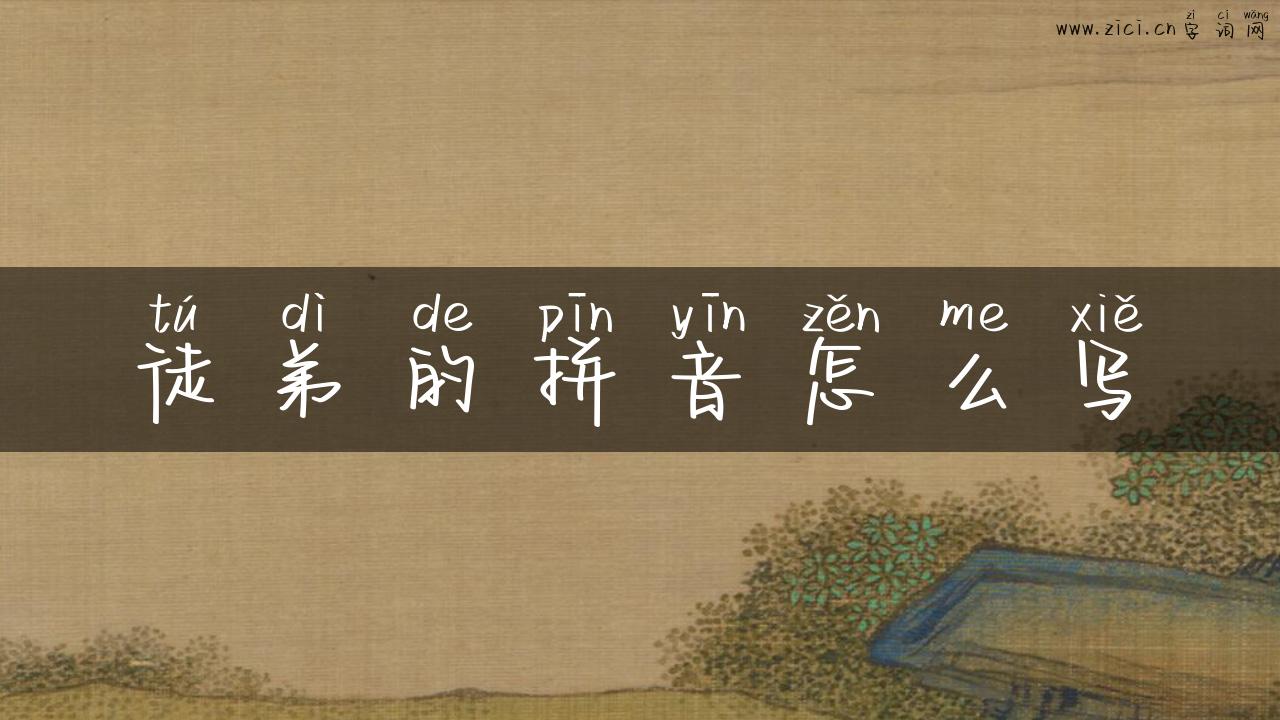 zì cí wǎng
www.zici.cn字词网
tú dì de pīn yīn zěn me xiě
徒弟的拼音怎么写